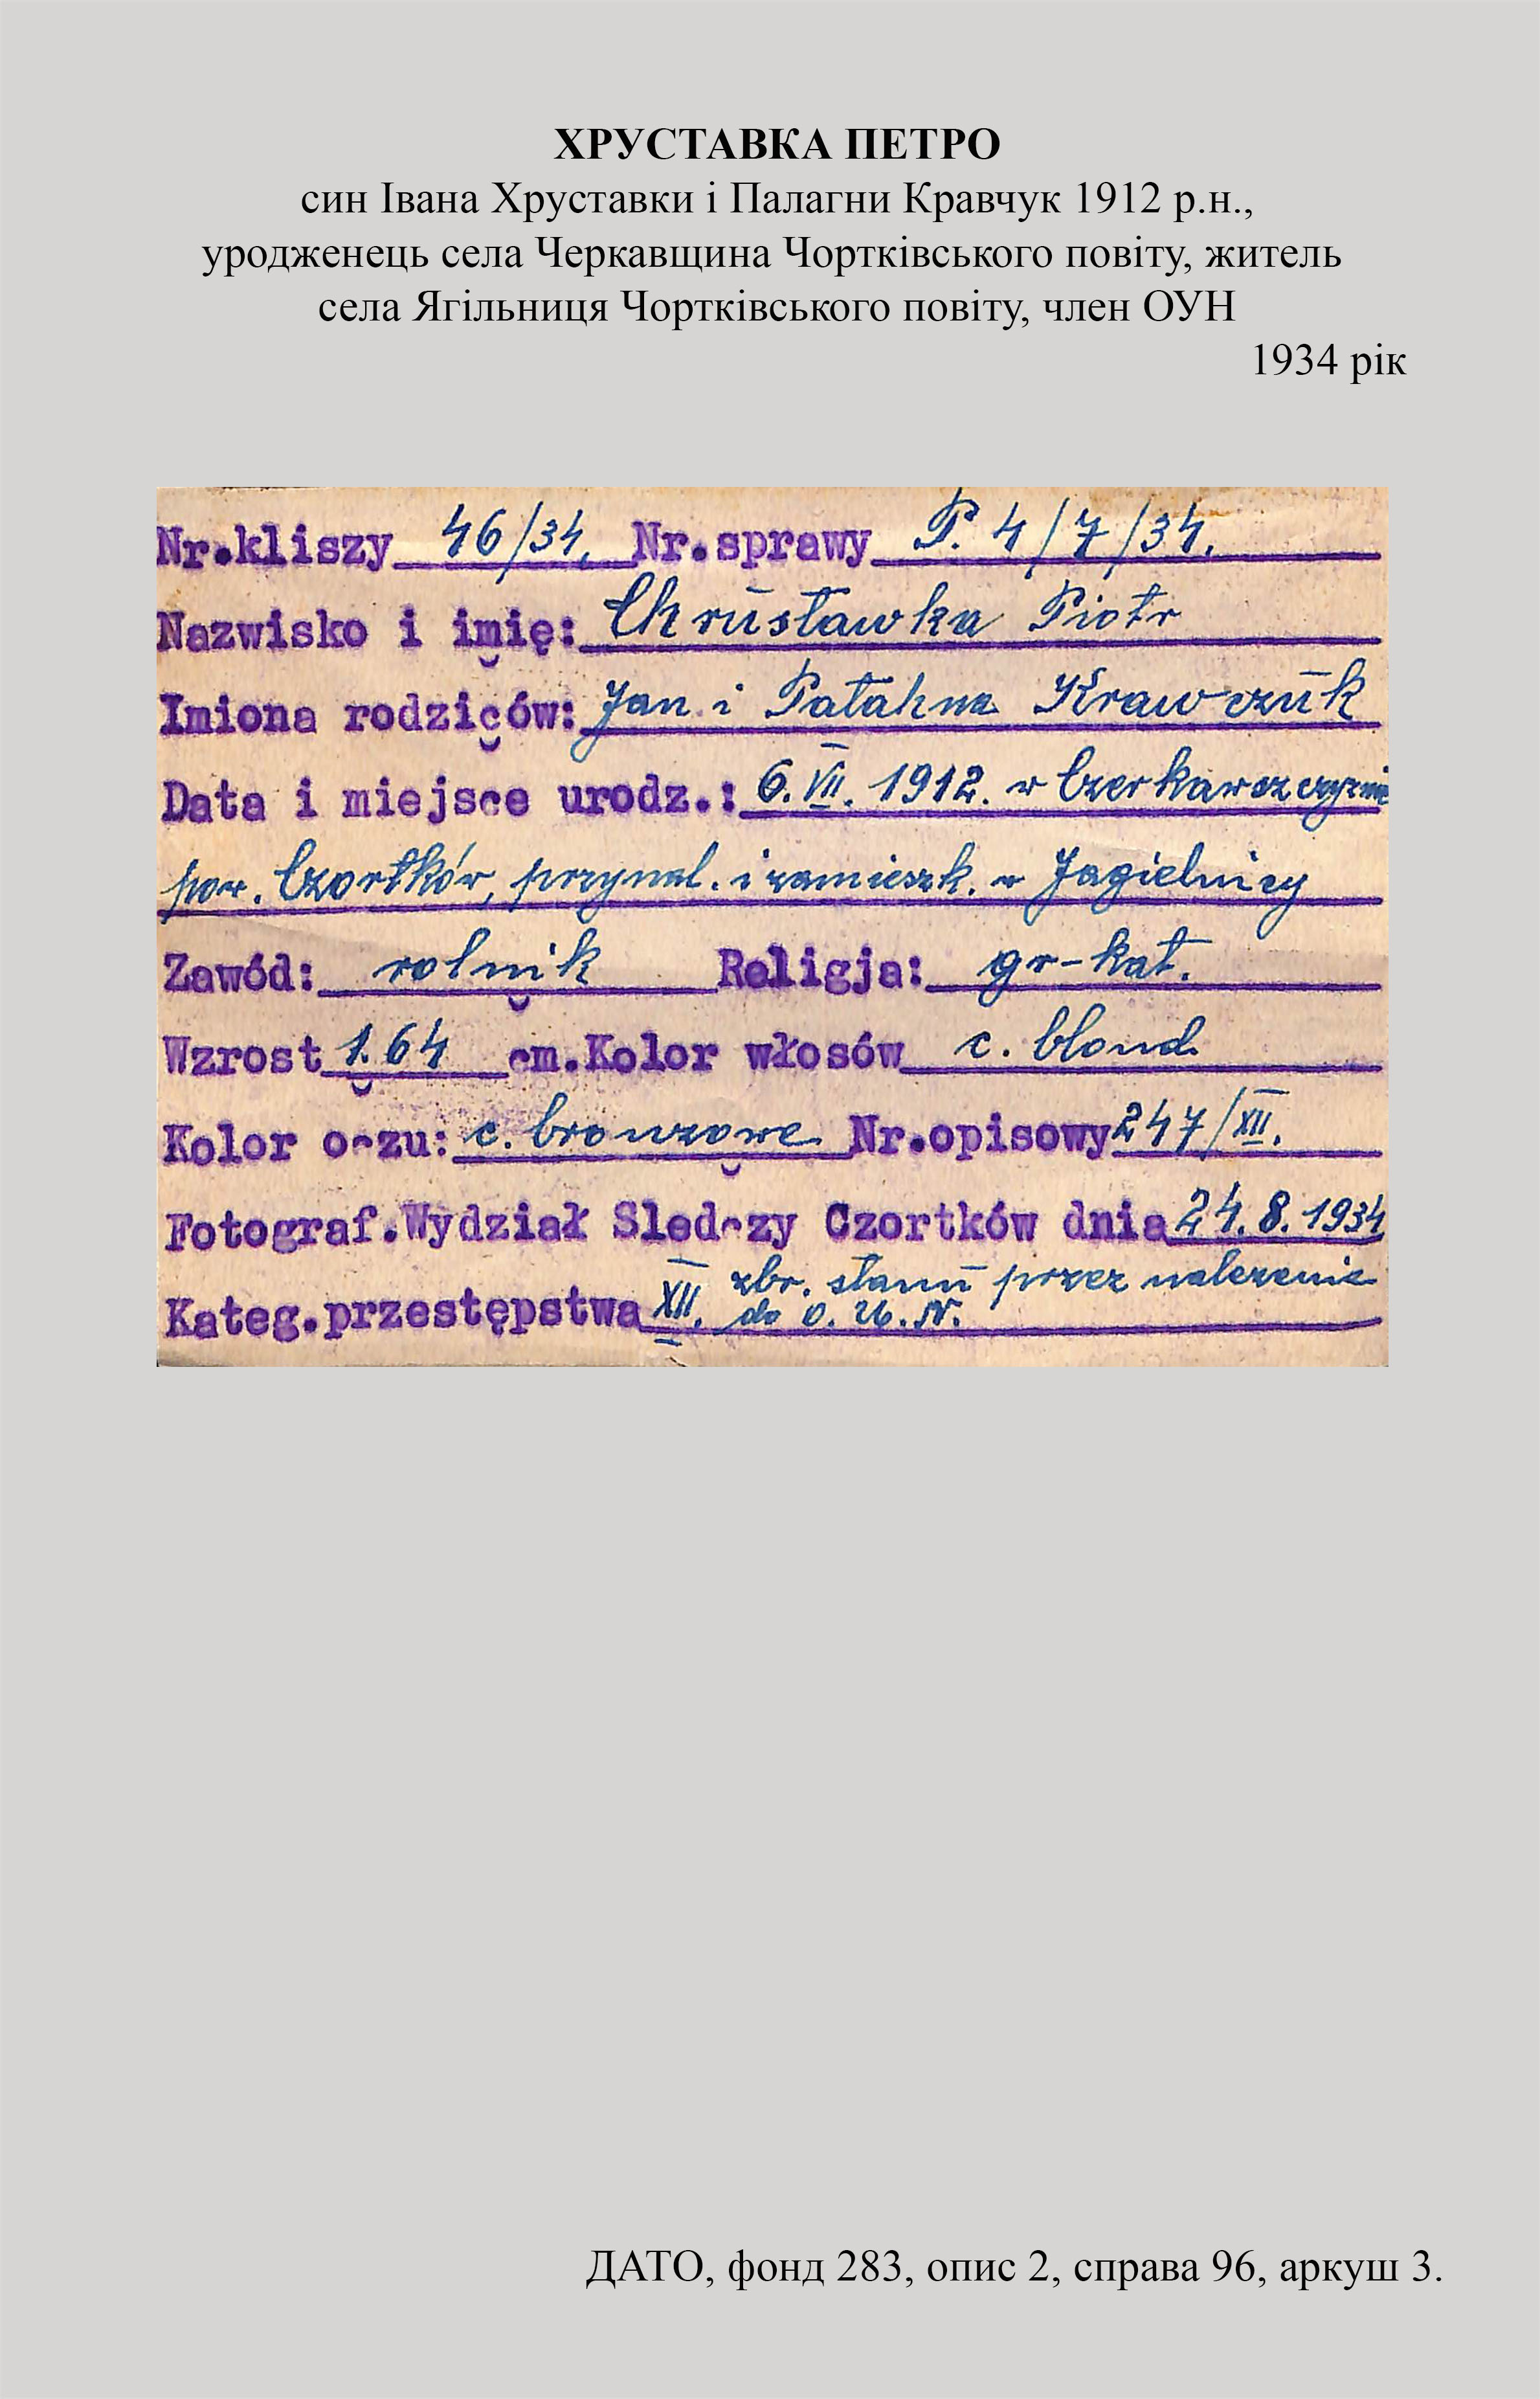 ХРУСТАВКА ПЕТРО
син Івана Хруставки і Палагни Кравчук 1912 р.н.,
уродженець села Черкавщина Чортківського повіту, житель
села Ягільниця Чортківського повіту, член ОУН
1934 рік
Nr.kliszy 46/34. Nr.sprawy P. 4/7/34.
Nazwisko i imię: Chrustawka Piotr
Imiona rodziców: Jan i Patahna Krawczuk
Data i miejsce urodz.: 6.VII.1912. w Czerkawszczyznie
pow. Czortków, przynal. i zamieszk. w Jagielnicy
Zawód: rolnik Religja: gr-kat.
Wzrost 1.64 cm. Kolor włosów c. blond
Kolor oczu: c. bronzowe Nr.opisowy 247/XII.
Fotograf.Wydział Sledczy Czortków dnia 24.8.1934
Kateg.przestępstwa XII. zbr. stanu przez nalezenie
do O.U.N.
ДАТО, фонд 283, опис 2, справа 96, аркуш 3.